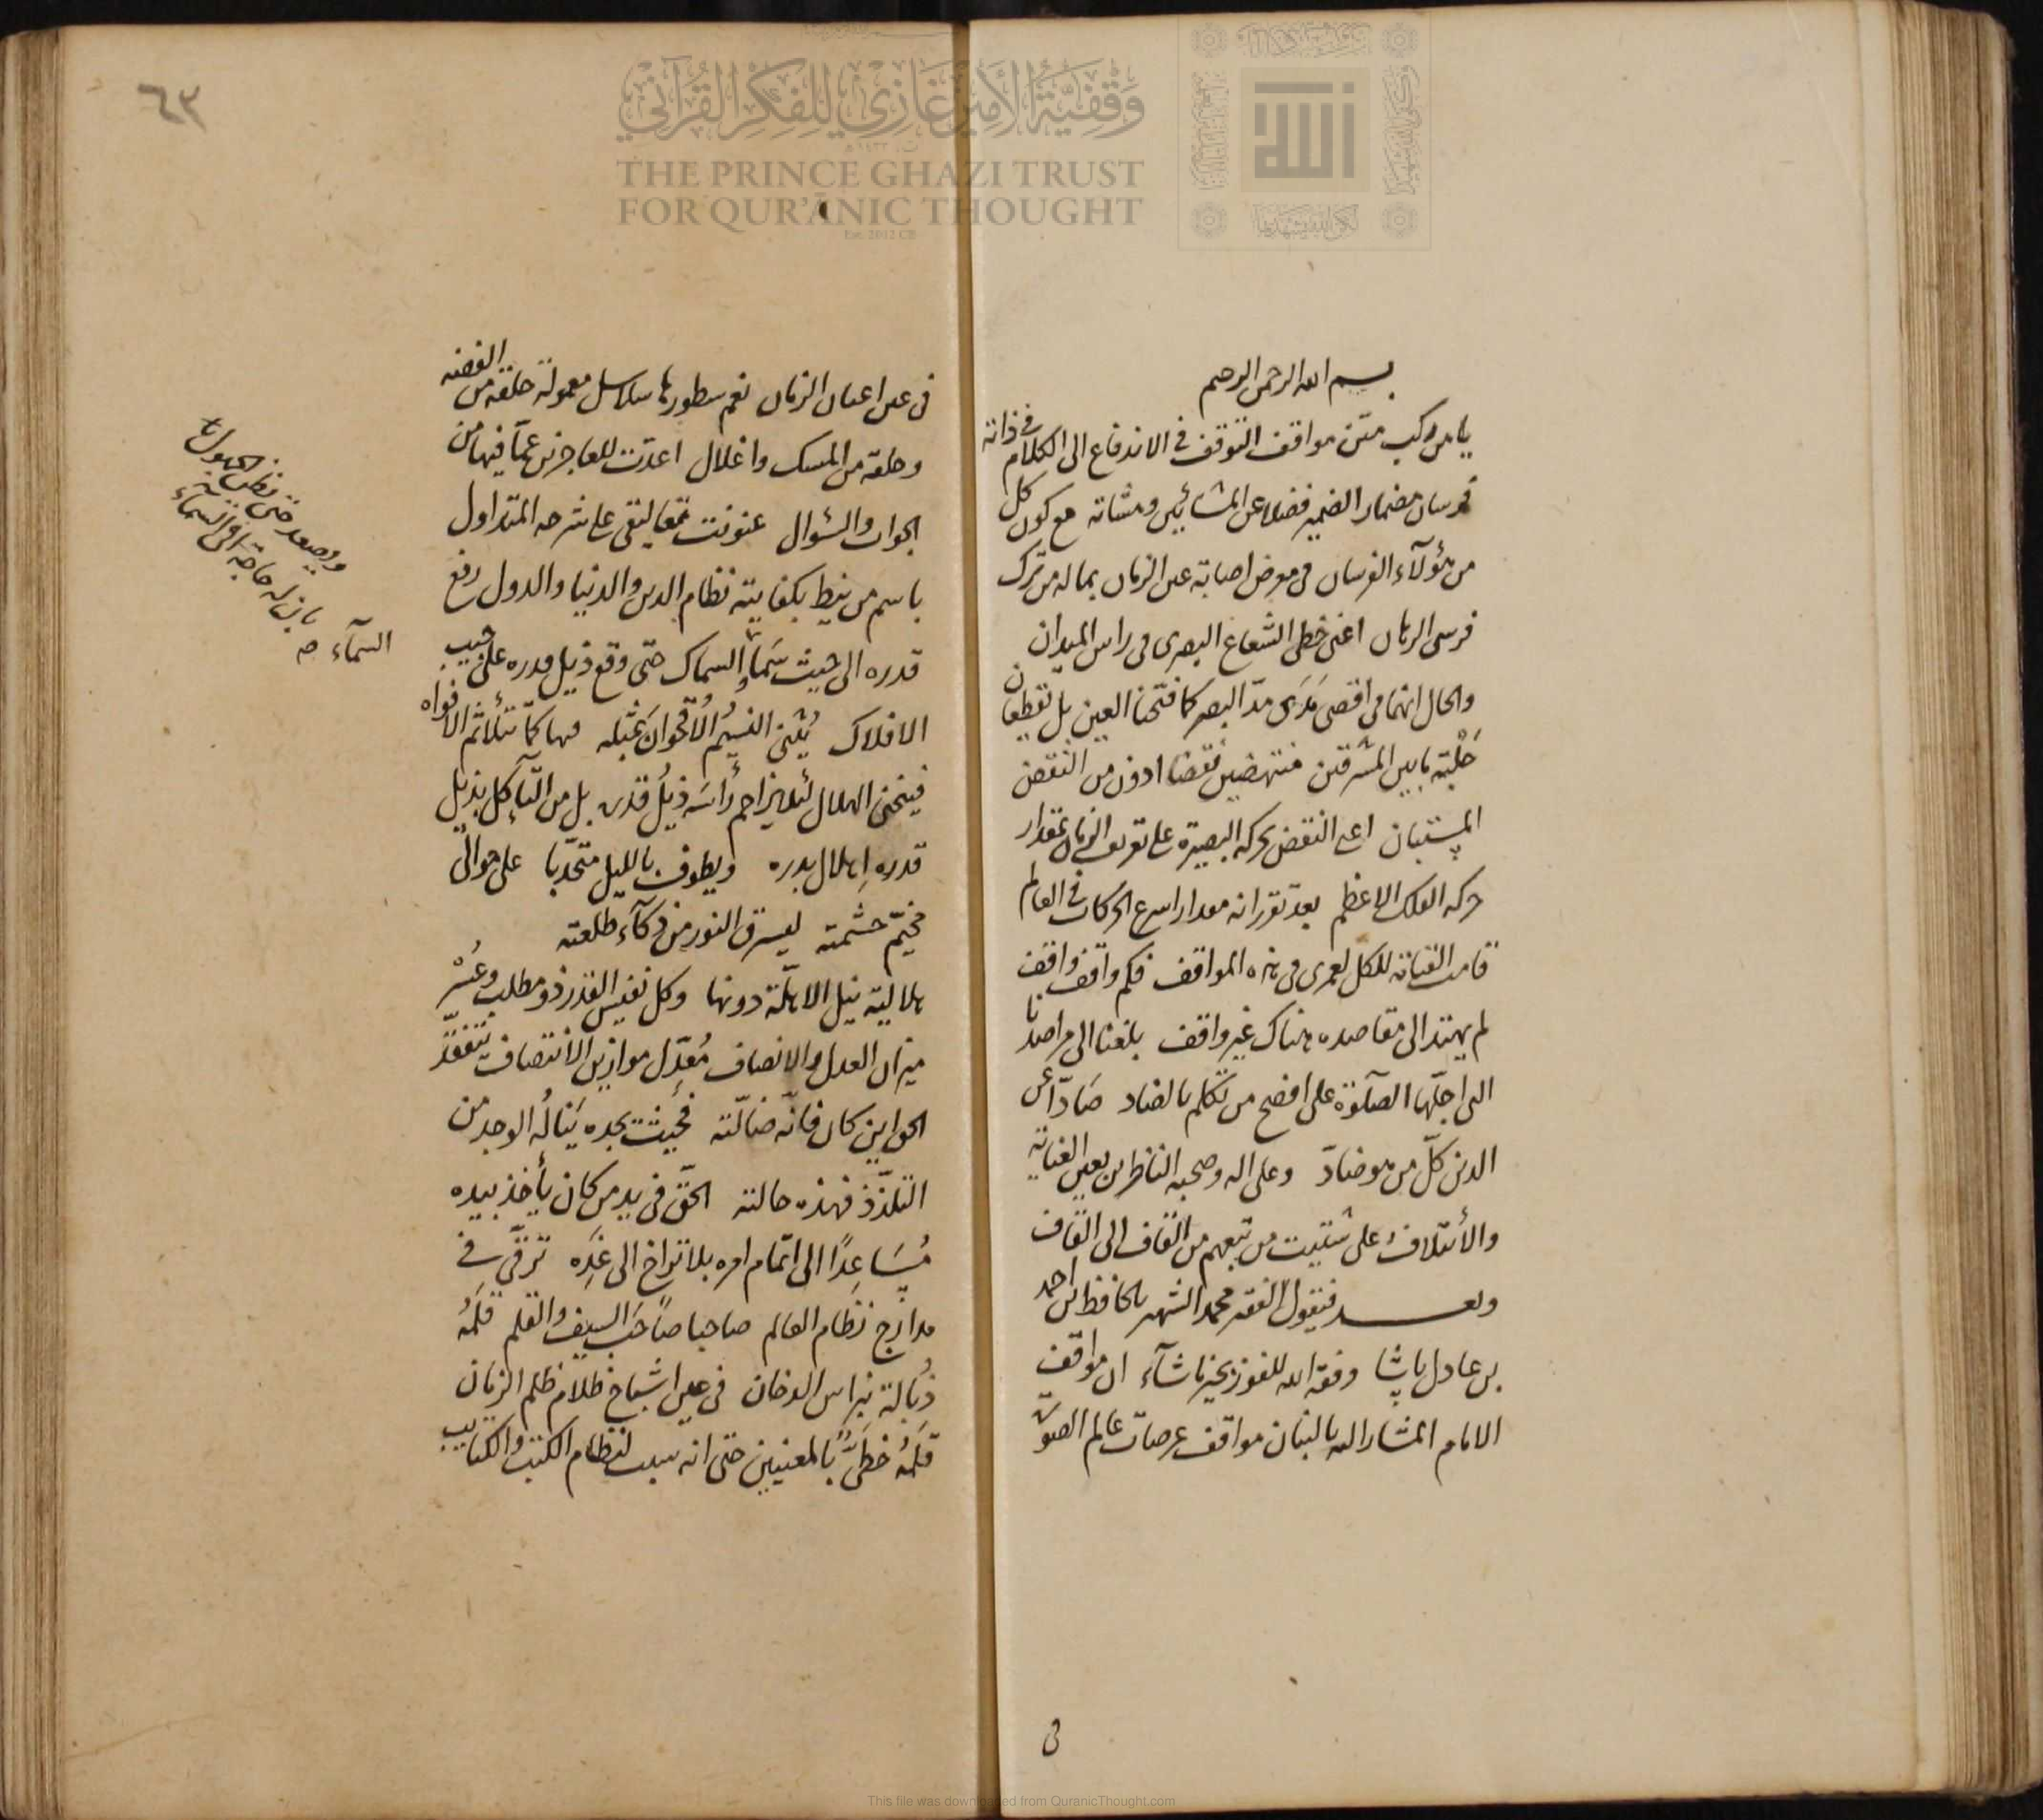 بسم الله الرحمن الرحيم
يا من ركب متن مواقف التوقف في الاندفاع الى الكلام في ذاته
فرسان مضمار الضمير فضلا عن المشائين ومشاته مع كون كل
من هؤلاء الفرسان في معرض اصابة عين الزمان بماله من ترك
فرسى الرهان اعنى خطى الشعاع البصرى في راس الميدان
والحال انهما في اقصى مَدَى مدّ البصر كما فتحنا العين بل تقطعان
حَلْبة ما بين المشرقين منتهضين نقضا ادون من النقض
المستبان اعنى النقض بحركة البصيرة على تعريف الزمان بمقدار
حركة الفلك الاعظم بعد تقرر انه مقدار اسرع الحركات في العالم
قامت القيامة للكل لعمرى في هذه المواقف فكم واقف واقف
لم يهتد الى مقاصده هناك غير واقف بلغنا الى مراصدنا
التى اجلّها الصلوة على افصح من تكلم بالضاد صَادّا عن
الدين كلّ من هو ضادّ وعلى اله وصحبه الناظرين بعين العناية
والأئتلاف على شتيت من تبعهم من القاف الى القاف
وبعد فيقول الفقير محمد الشهير بالحافظ بن احمد
بن عادل پاشا وفقه الله للفوز بخير ما شآء ان مواقف
الامام المشار اليه بالبنان مواقف عرصات عالم الصور
في
٦٣
في عين اعيان الزمان نعم سطورها سلاسل معمولة حلقة من الفضة
وحلقة من المسك واغلال اعدّت للعاجزين عمّا فيها من
الجواب والسؤال عنونت تعاليقى على شرحه المتداول
باسم من نيط بكفايته نظام الدين والدنيا والدول رفع
قدره الى حيث سَمَا السماك حتى وقع ذيل قدره على جيب
الافلاك يُثنى النسيمُ الاُقحوانَ بمثله مهما كمّا تتلاثم الافواه
فينحنى الهلال لئلا يزاحم رأسَه ذيلُ قدره بل من التآكل بذيل
قدره اهلال بدره ويطوف بالليل متحدّبا على حوالى
مخيّم حشمته ليسرق النور من ذكآء طلعته
هلالية نيل الاهلّة دونها وكل نفيس القدر ذو مطلب وعُسْر
ميزان العدل والانصاف مُعدِّل موازين الانتصاف يتفقّد
الحق اين كان فانّه ضالّته فحيث يجده يَنالُه الوجد من
التلذّذ فهذه حالته الحقّ في يد من كان يأخذ بيده
مُسَاعِدًا الى اتمام امره بلا تراخ الى غَدِه ترقّى في
مدارج نظام العالم صاحبا صاحَبَ السيف والقلم قلمُه
ذُبالة نبراس الدخان في عين اشباح ظلام ظلم الزمان
قلمُه خطّىٌّ بالمعنيين حتى انه سبب لنظام الكتب والكتايب
ويصعد حتى يظن الجهول
بان له حاجة في السماء
السمآء صح
THE PRINCE GHAZI TRUST
FOR QUR'ĀNIC THOUGHT
Est. 2012 CE
وقفية الأمير غازي للفكر القرآني
This file was downloaded from QuranicThought.com